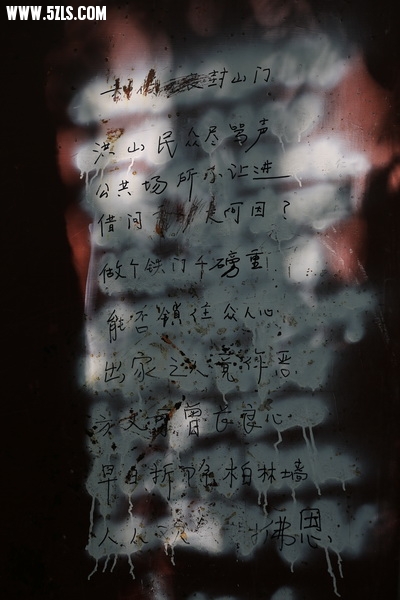 WWW.5ZLS.COM
封山门
洪山民众尽骂声
公共场所不让进
借问 是何因？
做个铁门千磅重
能否锁住众人心
出家之人竟作恶
良心
早日拆除柏林墙
人人 佛恩